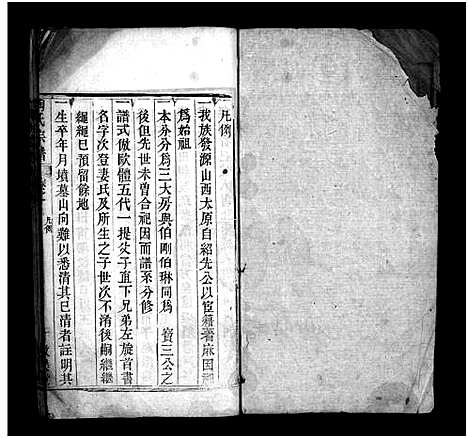 凡例
一我族發源山西太原自紹先公以宦籍著麻因
爲始祖
一本分分爲三大房與伯剛伯琳同爲 寶三公之
後但先世未曾合祀因而譜系分修
一譜式倣歐體五代一提父于直下兄弟左旋首書
名字次登妻氏及所生之子世次不淆後嗣繼繼
繩繩已預留餘地
一生卒年月墳墓山向難以悉清其已清者註明其
氏宗譜
凡例